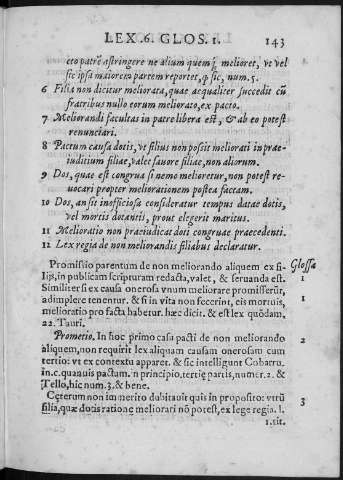 LEX .6. GLOS. 1. 143
cto patrē astringere ne alium quemq́; melioret, vt vel
sic ipsa maiorem partem reportet, q̄ sic, num. 5.
6 Filia non dicitur meliorata, quae aequaliter succedit cū
fratribus nullo eorum meliorato, ex pacto.
7 Meliorandi facultas in patre libera est, & ab eo potest
renunciari.
8 Pactum causa dotis, vt filius non possit meliorari in prae-
iuditium filiae, valet fauore filiae, non aliorum.
9 Dos, quae est congrua si nemo melioretur, non potest re-
uocari propter meliorationem postea factam.
10 Dos, an sit inofficiosa consideratur tempus datae dotis,
vel mortis dotantis, prout elegerit maritus.
11 Melioratio non praeiudicat doti congruae praecedenti.
12 Lex regia de non meliorandis filiabus declaratur.
Promissio parentum de non meliorando aliquem ex fi- Glossa
lijs, in publicam scripturam redacta, valet, & seruanda est. 1
Similiter si ex causa onerosa vnum meliorare promisserūt, 1
adimplere tenentur. & si in vita non fecerint, eis mortuis,
melioratio pro facta habetur. haec dicit. & est lex quōdam.
22. Tauri.
Prometio. In hoc primo casu pacti de non meliorando 2
aliquem, non requirit lex aliquam causam onerosam cum
tertio: vt ex contextu apparet. & sic intelligunt Cobarru.
in.c.quanuis pactum. in principio. tertię partis, numer. 2. &
Tello, hic num. 3. & bene.
Cęterum non immerito dubitauit quis in proposito: vtrū 3
filia, quæ dotis ratione meliorari nō potest, ex lege regia. l.
1.tit.